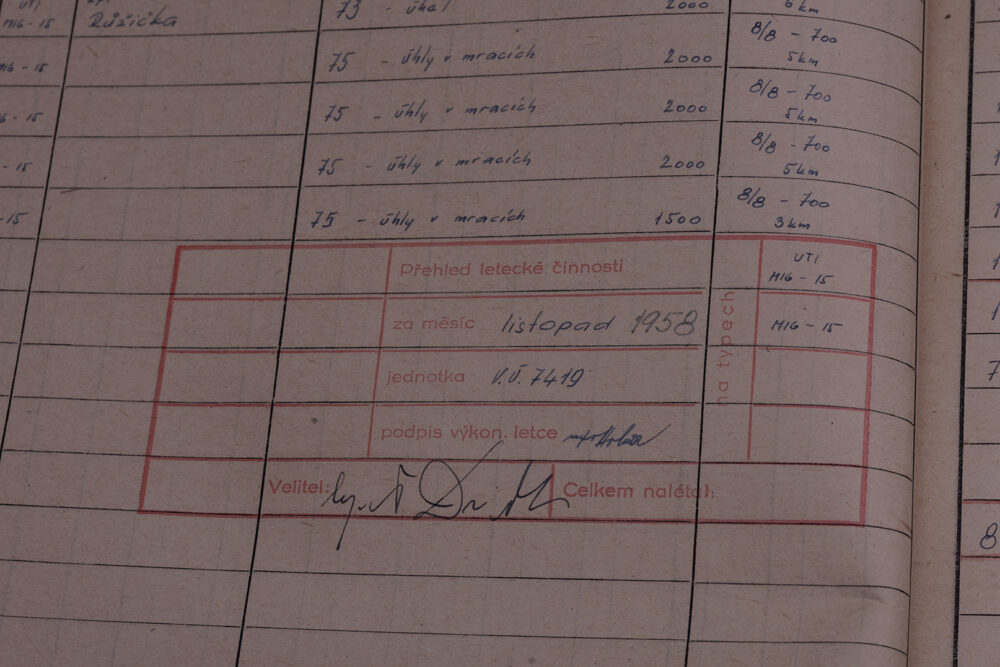 UTI
MIG-15 Růžička 73 - úhel 2000 6 km
MIG-15 75 - úhly v mracích 2000 8/8 - 700
5 km
- 15 75 - úhly v mracích 2000 8/8 - 700
5 km
- 15 75 - úhly v mracích 2000 8/8 - 700
5 km
-15 75 - úhly v mracích 1500 8/8 - 700
3 km
Přehled letecké činnosti
UTI
MIG - 15
za měsíc listopad 1958
na typech
MIG - 15
jednotka V.Ú. 7419
podpis výkon. letce
Velitel:
Celkem nalétal:
7
8